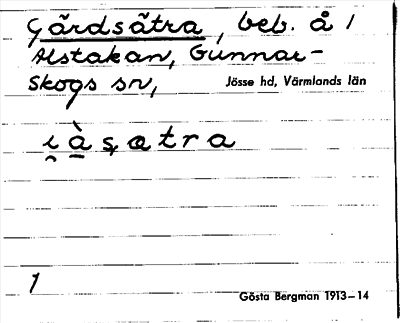 Gårdsätra, beb. å /
Alstakan, Gunnar-
Skogs sn, Jösse hd, Värmlands län
i̯à̱ṣatra
1
Gösta Bergman 1913-14